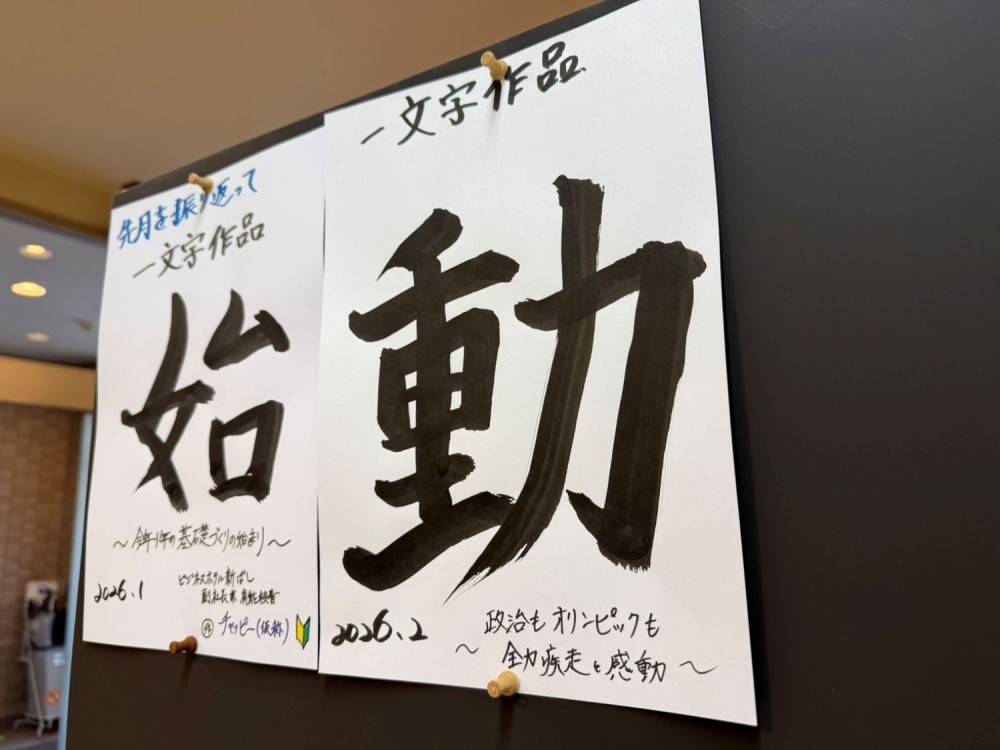 先月を振り返って
一文字作品
始
～今年1年の基礎づくりの始まり～
2026.1
ビジネスホテル新ばし
㊕チャッピー(仮称)
一文字作品
動
2026.2
政治もオリンピックも
～全力疾走と感動～